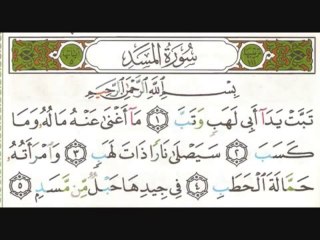 سُورَةُ الْمَسَدِ
بِسْمِ اللَّهِ الرَّحْمَٰنِ الرَّحِيمِ
تَبَّتْ يَدَآ أَبِى لَهَبٍ وَتَبَّ ١ مَآ أَغْنَىٰ عَنْهُ مَالُهُۥ وَمَا
كَسَبَ ٢ سَيَصْلَىٰ نَارًا ذَاتَ لَهَبٍ ٣ وَٱمْرَأَتُهُۥ
حَمَّالَةَ ٱلْحَطَبِ ٤ فِى جِيدِهَا حَبْلٌ مِّن مَّسَدٍۭ ٥